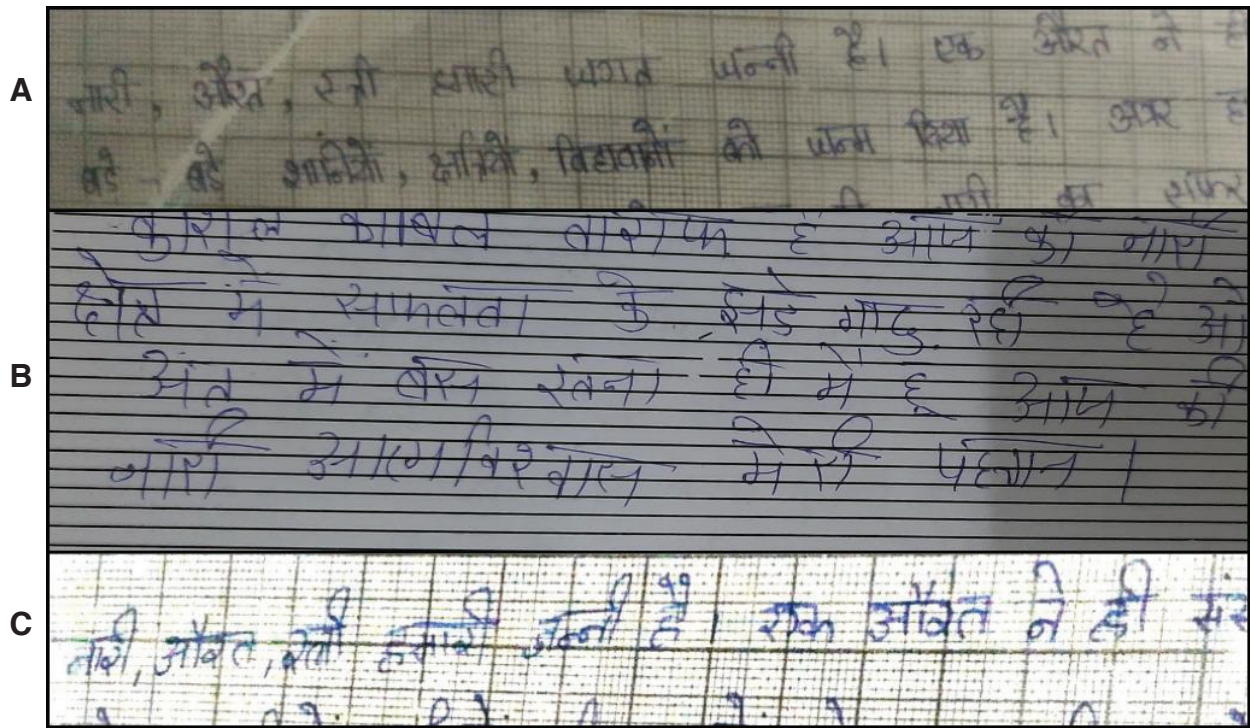 A
नारी, औरत, स्त्री हमारी जगत जन्नी है। एक औरत ने ह
बडे - बडे ज्ञानियो, क्षत्रियो, को जन्म दिया है। अगर ह
का
B
काबिल तारीफ है आज की नारी
क्षेत्र मे सफलता के झंडे गाढ़ रही है ओ
अंत मे बस इतना ही मे हू आज की
नारी आत्मविश्वास मेरी पहचान।
C
नारी, औरत, स्त्री हमारी जन्नी है। एक औरत ने ही